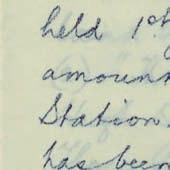 held 1st
amount
Station.
has been